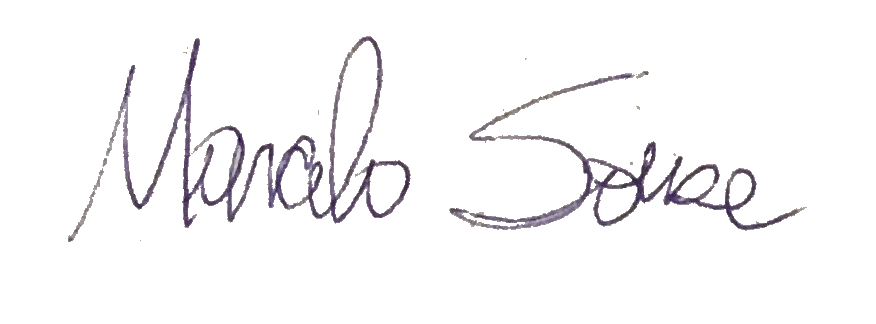 Marcelo Sousa